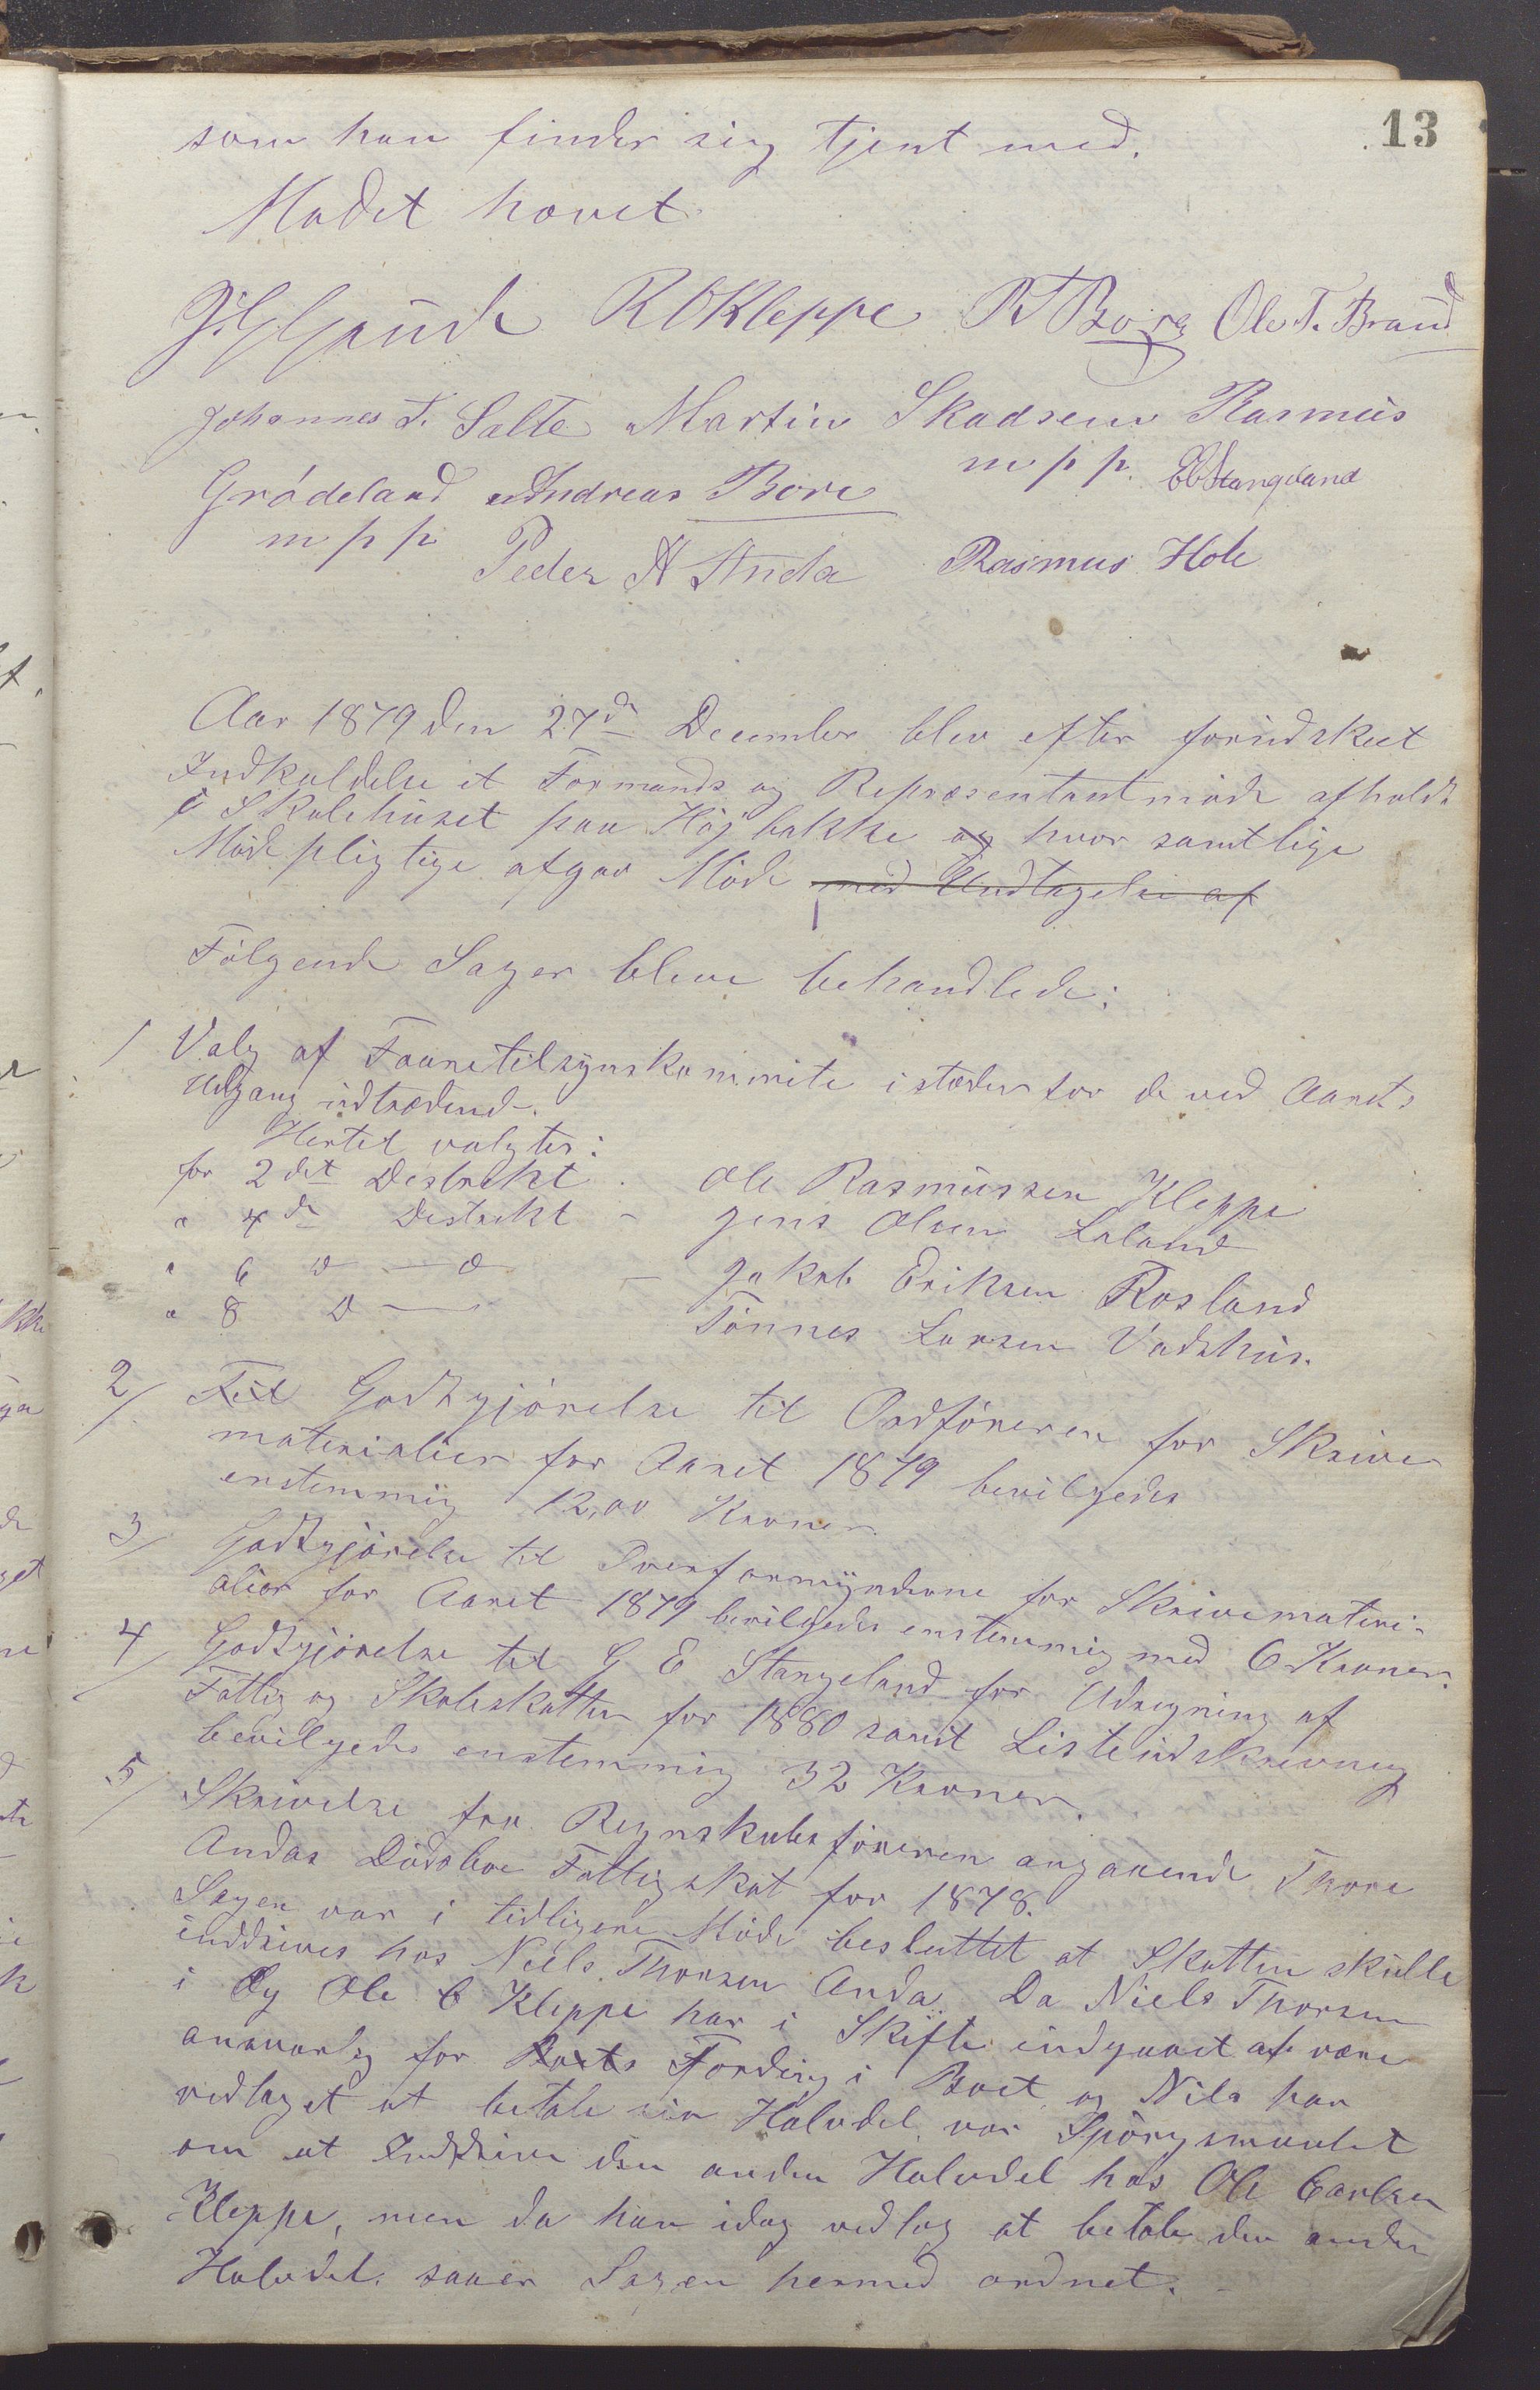 13
som han finder sig tjent med.
Mødet hævet
ROKleppe RTBore Ole T. Braud
Johannes T. Salte Martin Skadsem Rasmus
m p p. Stangeland
Grödeland Andreas Bore
m p p Peder A Anda Rasmus Hole
Aar 1879 den 27de December blev efter forudskeet
Indkaldelse et Formands og Repræsentantmöde afholdt
i Skolehuset paa Höjbakke og hvor samtlige
Mödepligtige afgav Möde med Undtagelse af
Fölgende Sager bleve behandlede:
1 Valg af Faaretilsynskommite istæden for de ved Aarets
Udgang udtrædende.
Hertil valgtes:
for 2det Destrikt - Ole Rasmussen Kleppe
" 4de Destrikt - Jens Olsen Laland
" 6 D — o — Jakob Eriksen Rosland
" 8 D — Tönnes Larsen Vadshus.
2/ Til Godtgjörelse til Ordföreren for Skrive
materialier for Aaret 1879 bevilgedes
enstemmig 12,00 Kroner.
3/ Godtgjörelse til Overformynderne for Skrivemateri-
alier for Aaret 1879 bevilgedes enstemmig med 6 Kroner.
4/ Godtgjörelse til G E Stangeland for Udregning af
Fattig og Skoleskatten for 1880 samt Listeudskrivning
bevilgedes enstemmig 32 Kroner.
5/ Skrivelse fra Regnskabsföreren angaaende Thore
Andas Dödsboe Fattigskat for 1878.
Sagen var i tidligere Möde besluttet at Skatten skulle
inddrives hos Niels Thorsen Anda. Da Niels Thorsen
i Og Ole C Kleppe har i Skifte indgaaet at være
ansvarlig for Boets Fording i Boet, og Nils har
vedtaget at betale sin Halvdel, var Spörgsmaalet
om at Inddrive den anden Halvdel hos Ole Carlsen
Kleppe, men da han idag vedtog at betale den anden
Halvdel. saa er Sagen hermed ordnet.